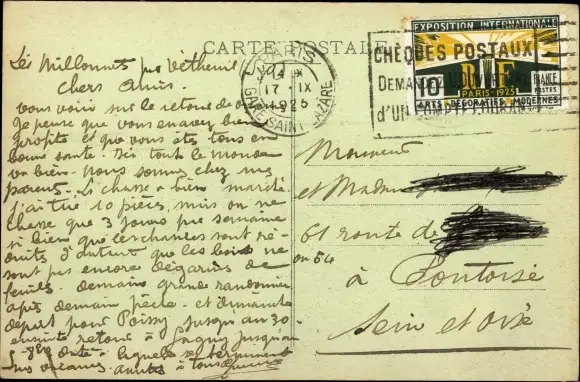 CARTE POSTALE
PARIS
17 - IX
1925
GARE SAINT LAZARE
CHÈQUES POSTAUX
DEMANDEZ
d'UN COMPTE COURANT
EXPOSITION INTERNATIONALE
10
RF
FRANCE
POSTES
PARIS-1925
ARTS DÉCORATIFS MODERNES
Les Millonnets par Vétheuil
chers Amis.
Vous voici sur le retour de
Je pense que vous en avez bien
profité et que vous êtes tous en
bonne santé. Ici tout le monde
va bien. Nous sommes chez mes
parents. La chasse a bien marché
j'ai tué 10 pièces, mais on ne
chasse que 3 jours par semaine
si bien que les chances sont ré-
duites d'autant que les bois ne
sont pas encore dégarnis de
feuilles. demain grande randonnée
après demain pêche. et dimanche
départ pour Poissy jusqu'au 30
ensuite retour à Gagny jusqu'au
à laquelle se terminent
nos vacances. amitiés à tous
Monsieur
et Madame
61 route de
ou 54
à Pontoise
Seine et Oise